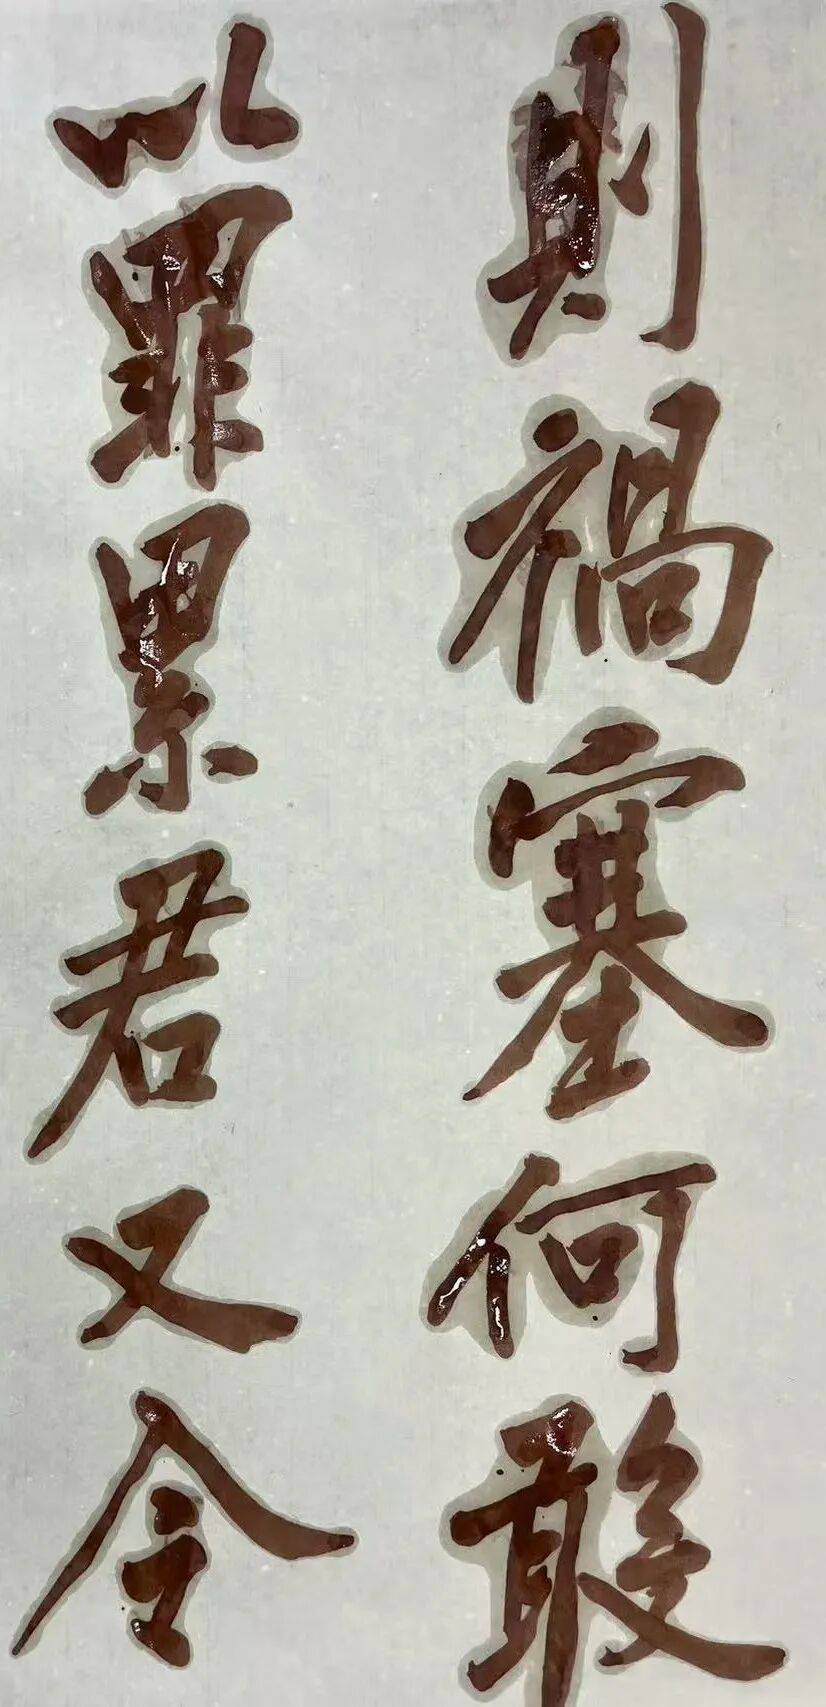 則禍塞何敢
以罪累君又令